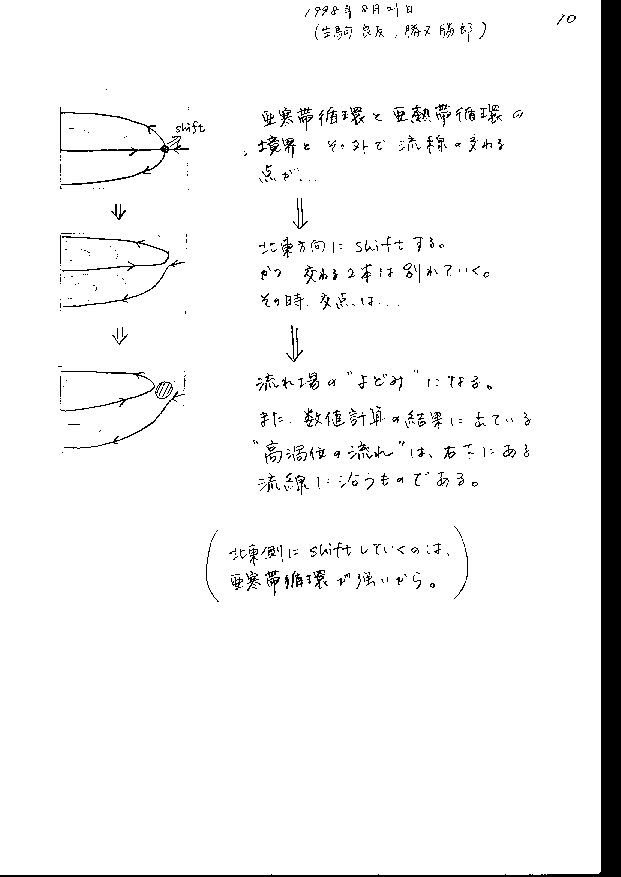 1998年8月21日
10
(生駒 良友, 勝又 勝郎)
shift
亜寒帯循環と亜熱帯循環の
境界と その外で 流線の交わる
点が...
北東方向に shift する。
かつ 交わる2本は 別れていく。
その時、交点は...
流れ場の"よどみ"になる。
また、数値計算の結果に出ている
"高渦位の流れ"は、右下にある
流線に沿うものである。
北東側に shift していくのは、
亜寒帯循環が強いから。